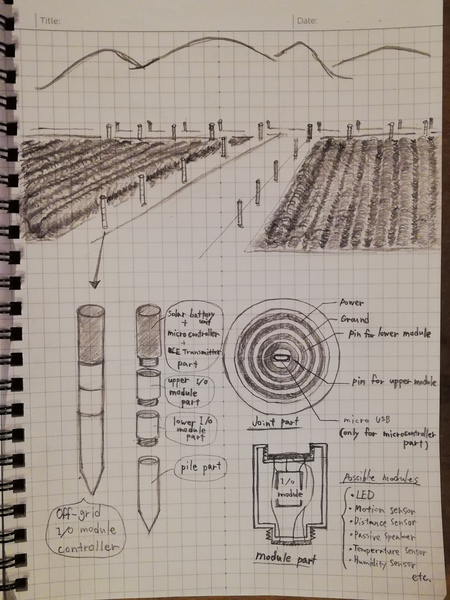 Title:
Date:
Solar battery
unit
+
microcontroller
+
Transmitter
part
upper I/O
module
part
lower I/O
module
part
pile part
Off-grid
I/O module
controller
Power
Ground
Pin for lower module
pin for upper module
micro USB
(only for microcontroller
part)
Joint part
I/O
module
module part
Possible modules
• LED
• Motion sensor
• Distance sensor
• Passive speaker
• Temperature sensor
• Humidity sensor
etc.